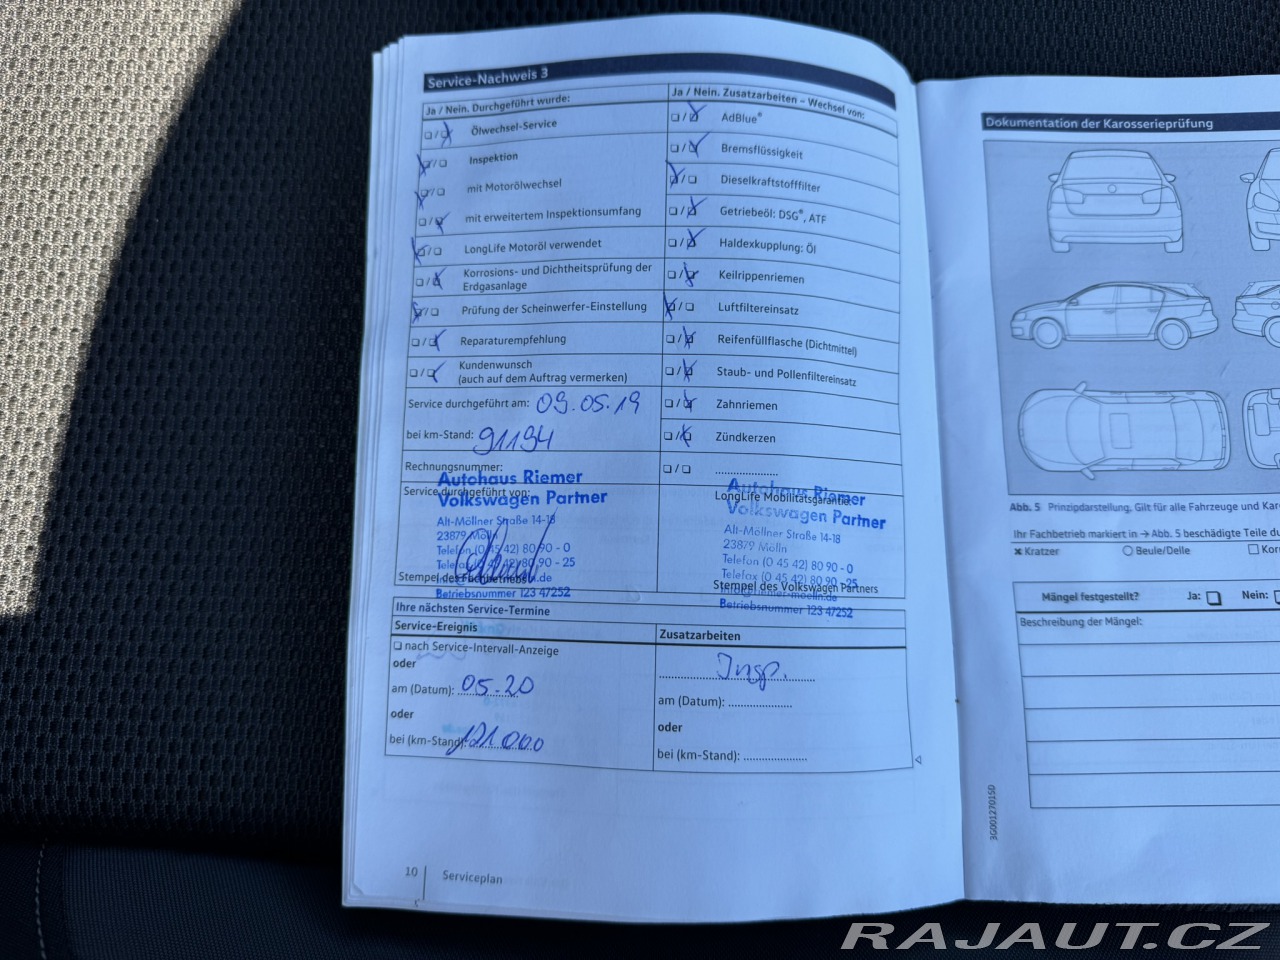 Service-Nachweis 3
Ja / Nein. Durchgeführt wurde:
Ölwechsel-Service
Inspektion
mit Motorölwechsel
mit erweitertem Inspektionsumfang
LongLife Motoröl verwendet
Korrosions- und Dichtheitsprüfung der
Erdgasanlage
Prüfung der Scheinwerfer-Einstellung
Reparaturempfehlung
Kundenwunsch
(auch auf dem Auftrag vermerken)
Service durchgeführt am: 09.05.19
bei km-Stand: 91194
Rechnungsnummer:
Service durchgeführt von:
Autohaus Riemer
Volkswagen Partner
Alt-Möllner Straße 14-18
23879 Mölln
Telefon (0 45 42) 80 90 - 0
Telefax (0 45 42) 80 90 - 25
Stempel des Fachbetriebs
Betriebsnummer 123 47252
Ja / Nein. Zusatzarbeiten – Wechsel von:
AdBlue®
Bremsflüssigkeit
Dieselkraftstofffilter
Getriebeöl: DSG®, ATF
Haldexkupplung: Öl
Keilrippenriemen
Luftfiltereinsatz
Reifenfüllflasche (Dichtmittel)
Staub- und Pollenfiltereinsatz
Zahnriemen
Zündkerzen
LongLife Mobilitätsgarantie:
Autohaus Riemer
Volkswagen Partner
Alt-Möllner Straße 14-18
23879 Mölln
Telefon (0 45 42) 80 90 - 0
Telefax (0 45 42) 80 90 - 25
Stempel des Volkswagen Partners
info@riemer-moelln.de
Betriebsnummer 123 47252
Ihre nächsten Service-Termine
Service-Ereignis
nach Service-Intervall-Anzeige
oder
am (Datum): 05.20
oder
bei (km-Stand): 121000
Zusatzarbeiten
Insp.
am (Datum):
oder
bei (km-Stand):
10
Serviceplan
Dokumentation der Karosserieprüfung
Abb. 5 Prinzipdarstellung, Gilt für alle Fahrzeuge und
Ihr Fachbetrieb markiert in → Abb. 5 beschädigte Teile
Kratzer
Beule/Delle
Mängel festgestellt?
Ja:
Nein:
Beschreibung der Mängel:
3G0012701SD
RAJAUT.CZ